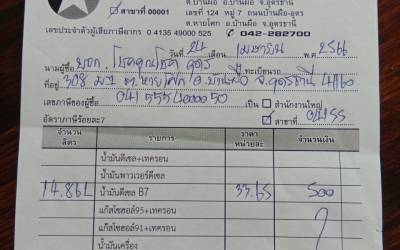 ต.บ้านผือ อ.บ้านผือ จ.อุดรธานี
☑ สาขาที่ 00001 เลขที่ 124 หมู่ 7 ถนนบ้านผือ-อุดร
ต.หายโศก อ.บ้านผือ จ.อุดรธานี
เลขประจำตัวผู้เสียภาษีอากร 0 4135 49000 525 042-282700
วันที่ 24 เมษายน พ.ศ. 2566
นามผู้ซื้อ บจก. โชคคูณโชค อุดร ทะเบียนรถ
ที่อยู่ 308 ม.1 ต.หายโศก อ.บ้านผือ จ.อุดรธานี 41160
เลขภาษีของผู้ซื้อ 0415554000050 เป็น สำนักงานใหญ่
อัตราภาษีร้อยละ7 สาขาที่
จำนวนลิตร รายการ ราคาหน่วยละ จำนวนเงิน
น้ำมันดีเซล+เทครอน
น้ำมันพาวเวอร์ดีเซล
14.86L น้ำมันดีเซล B7 33.65 500
แก๊สโซฮอล์95+เทครอน
แก๊สโซฮอล์91+เทครอน
น้ำมันเครื่อง